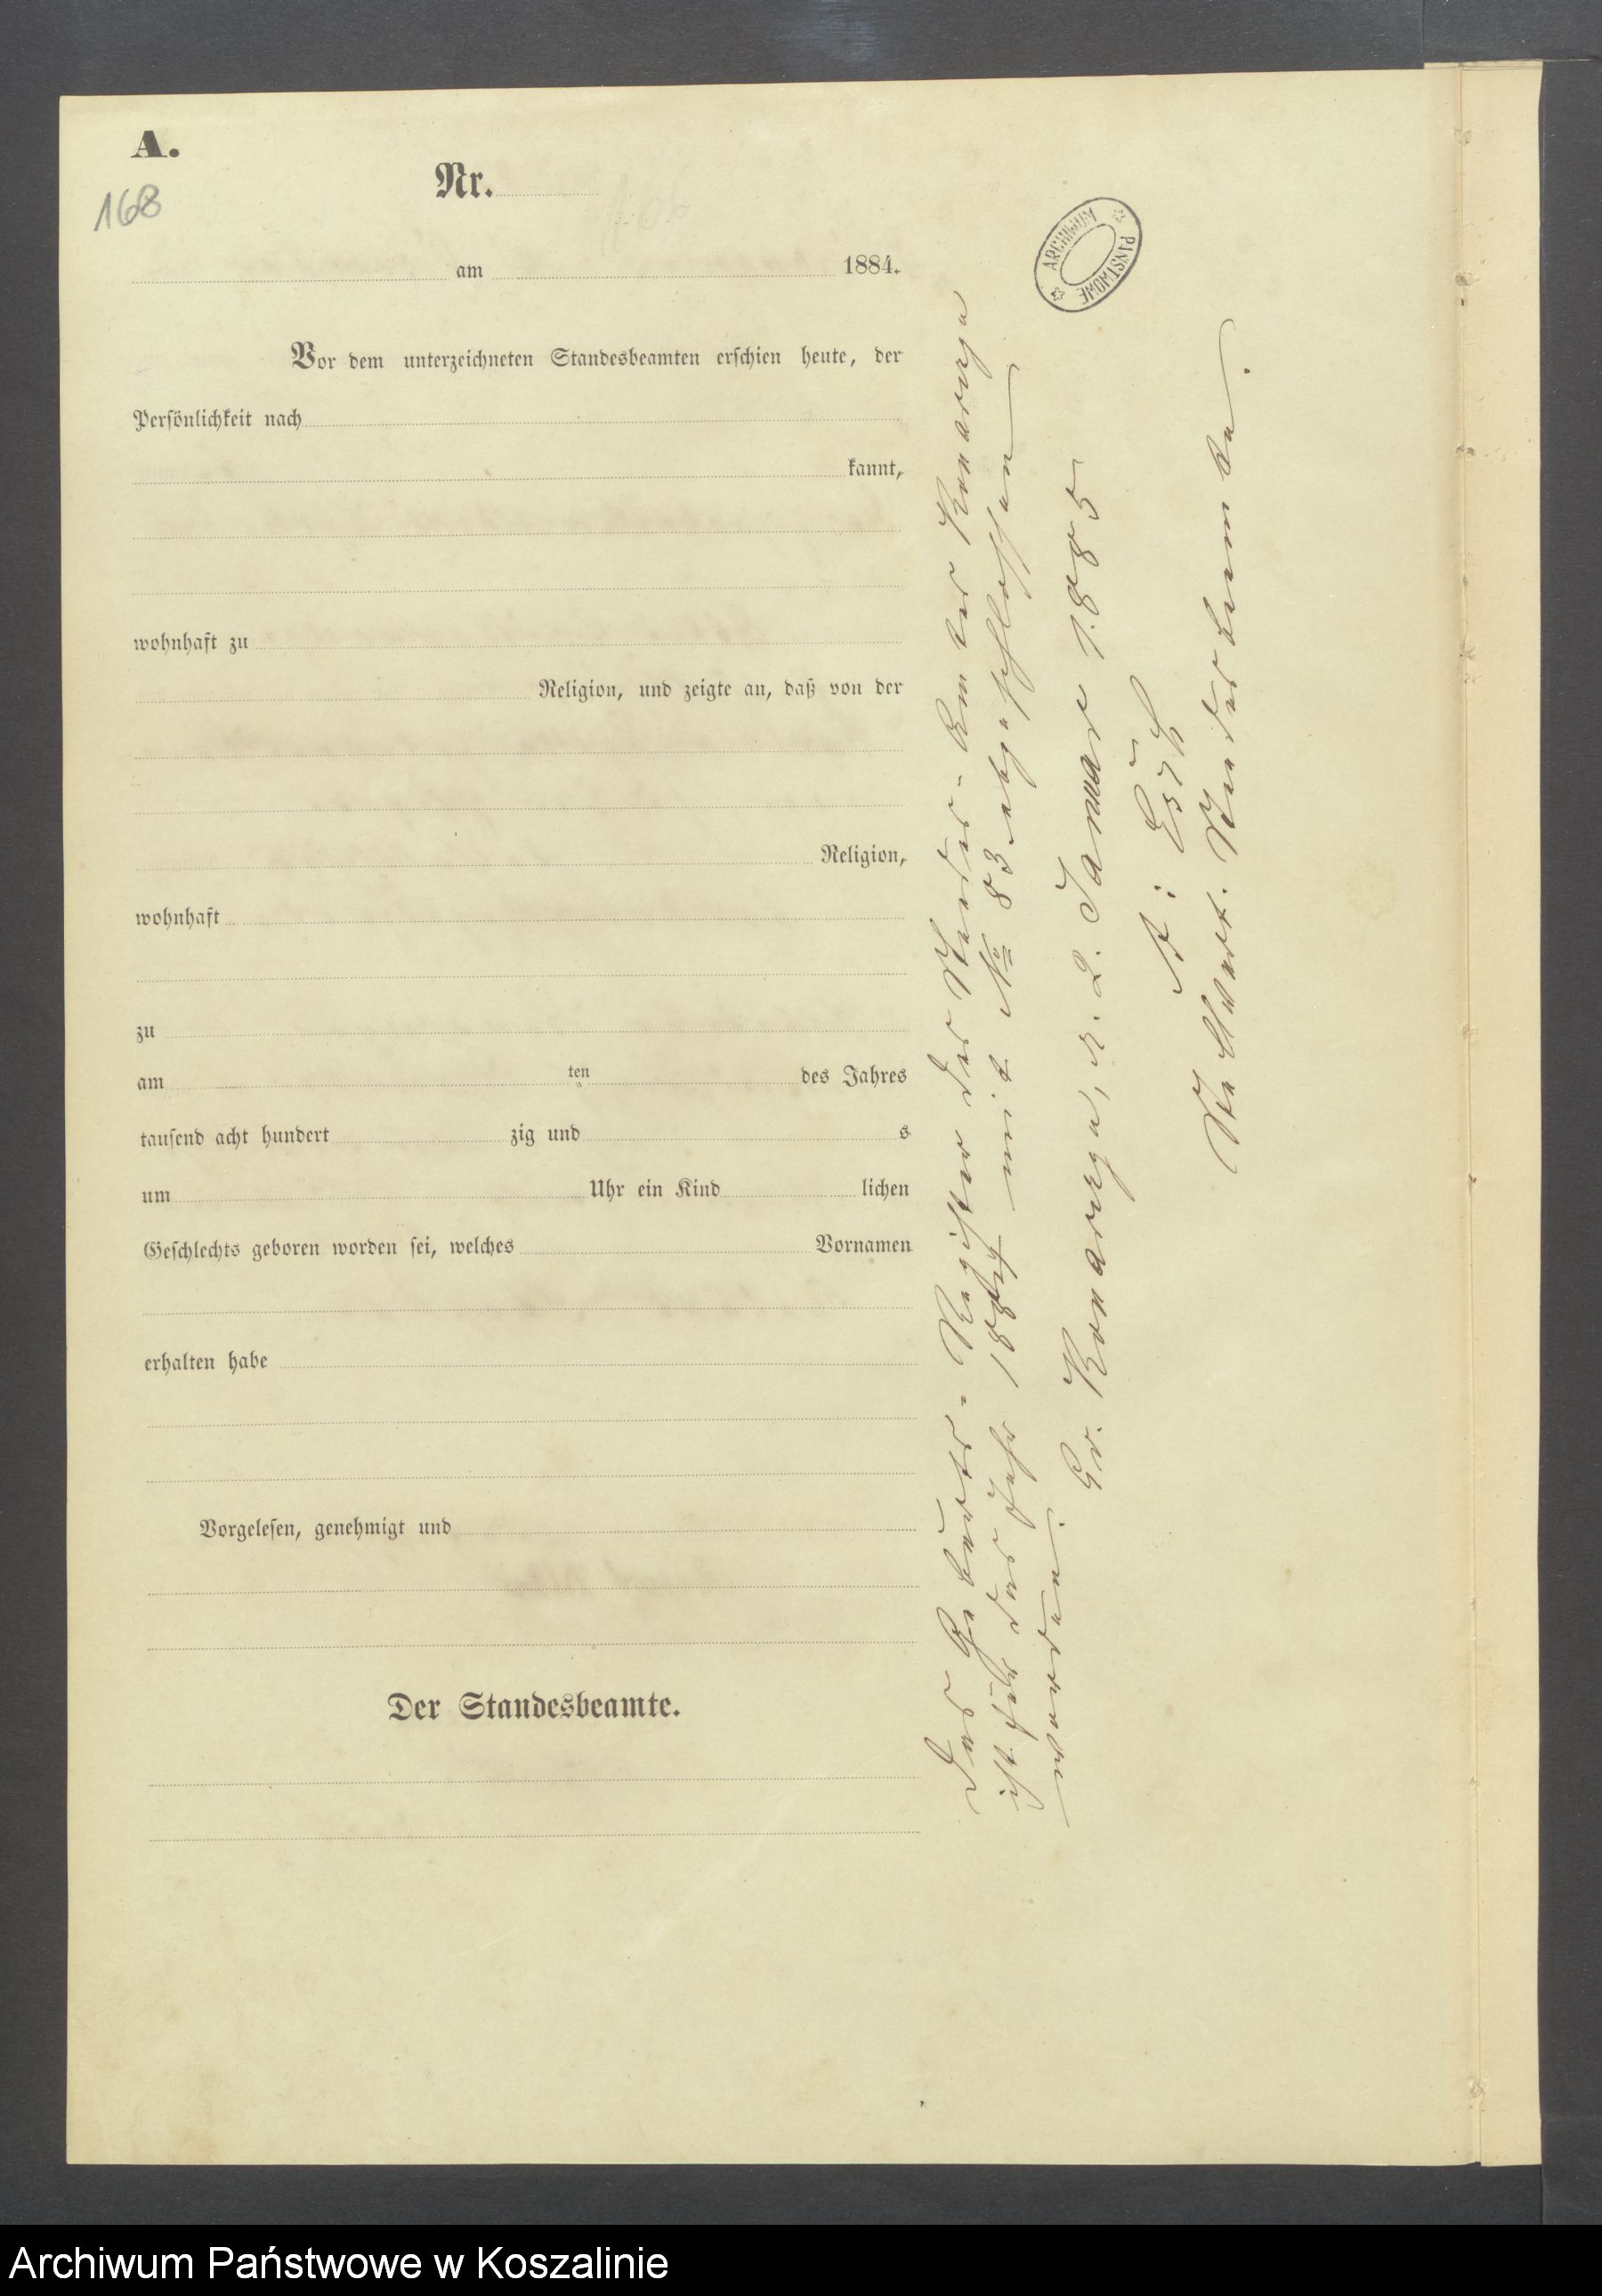 A.
168
Nr.
am 1884.
Vor dem unterzeichneten Standesbeamten erschien heute, der
Persönlichkeit nach
kannt,
wohnhaft zu
Religion, und zeigte an, daß von der
Religion,
wohnhaft
zu
am ten des Jahres
tausend acht hundert zig und s
um Uhr ein Kind lichen
Geschlechts geboren worden sei, welches Vornamen
erhalten habe
Vorgelesen, genehmigt und
Der Standesbeamte.
ARCHIWUM PAŃSTWOWE
Das Geburts-Register des Standes-Amtes Konarzyn
ist für das Jahr 1884 mit No 83 abgeschlossen
worden.
Gr. Konarzyn, d. 2. Januar 1885
Der Standesbeamte.
Archiwum Państwowe w Koszalinie